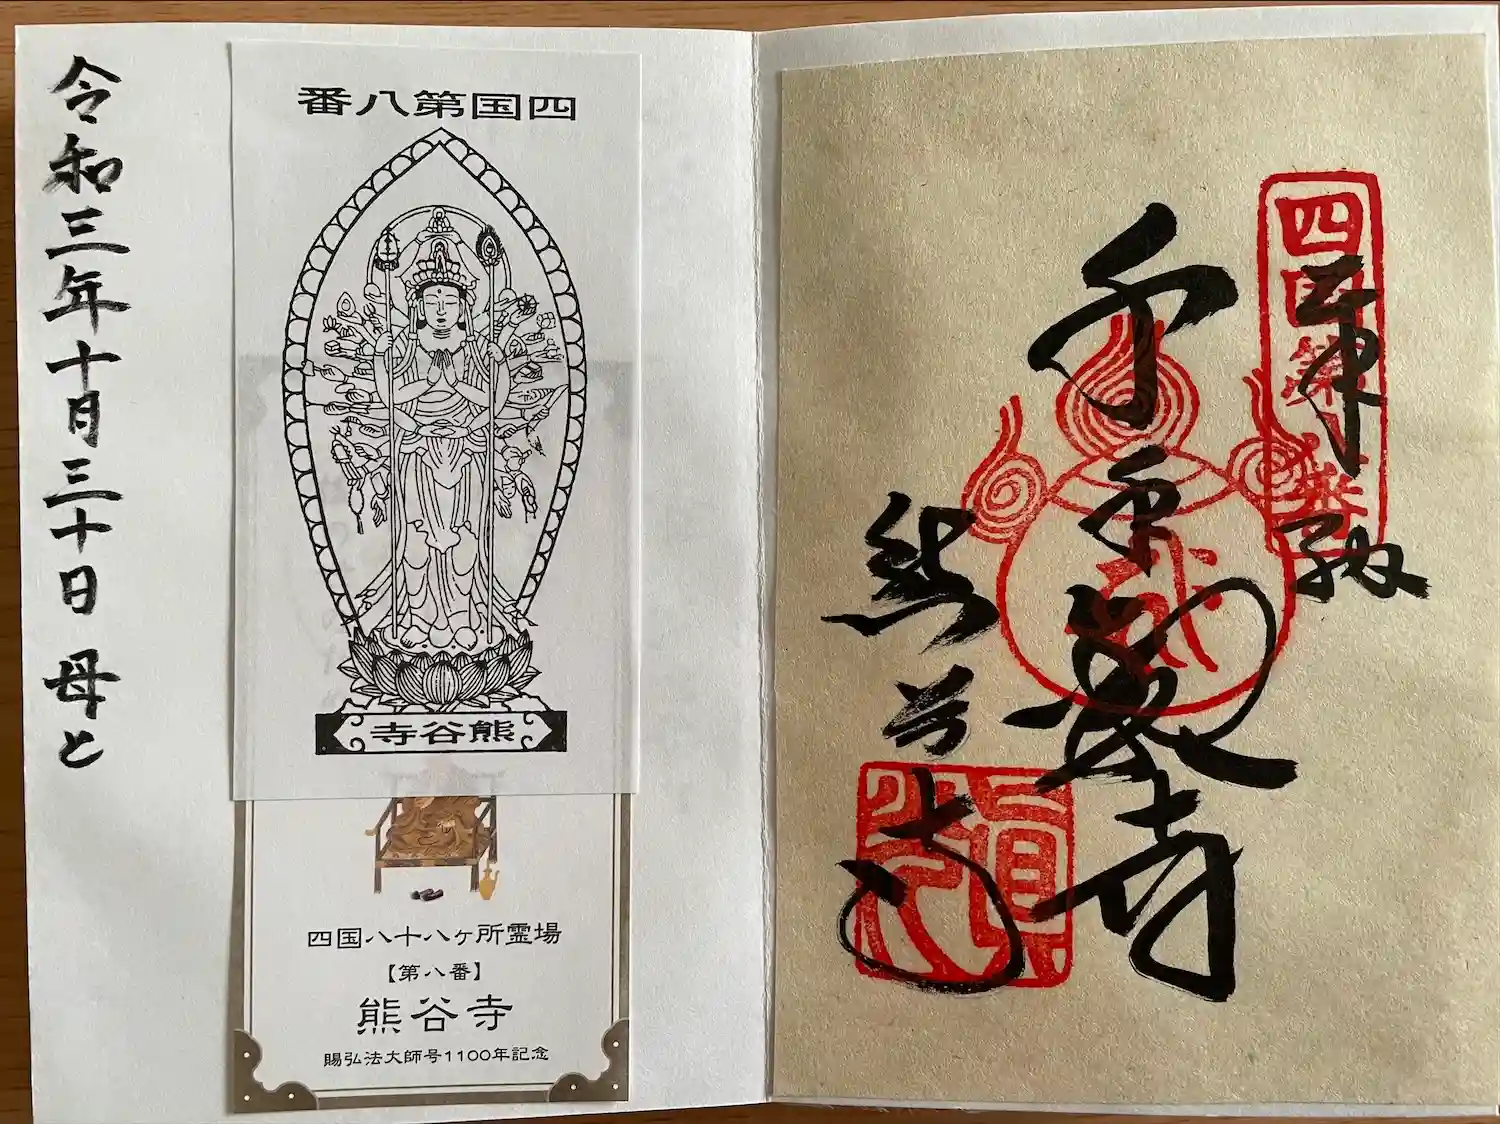 令和三年十月三十日 母と
四国第八番
熊谷寺
四国八十八ヶ所霊場
【第八番】
熊谷寺
賜弘法大師号1100年記念
四国第八番
奉納
熊谷寺